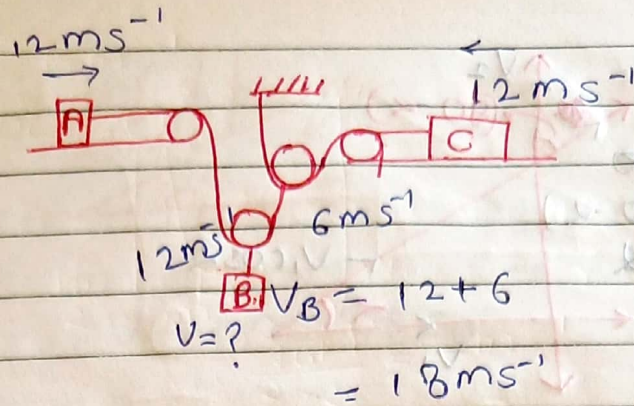 12ms⁻¹
12ms⁻¹
A
C
6ms⁻¹
12ms⁻¹
B
V_B = 12+6
V=?
= 18ms⁻¹